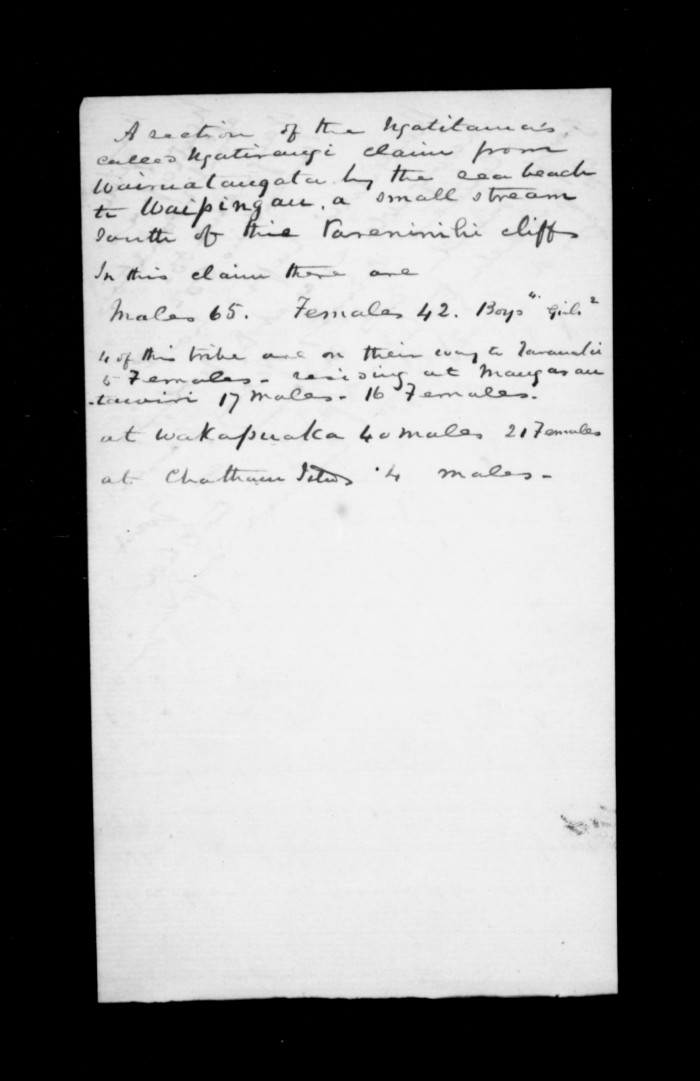 A section of the Ngatitama's,
called Ngatirangi claim from
Wairuatangata by the sea beach
to Waipingau. a small stream
South of the Pareninihi cliffs
In this claim there are
Males 65. Females 42. Boys 4. Girls 2
4 of this tribe are on their way to Taranaki
5 Females - resising at Maungarau
tawiri 17 Males - 16 Females.
at Wakapuaka 40 males 21 Females
at Chatham 4 males -